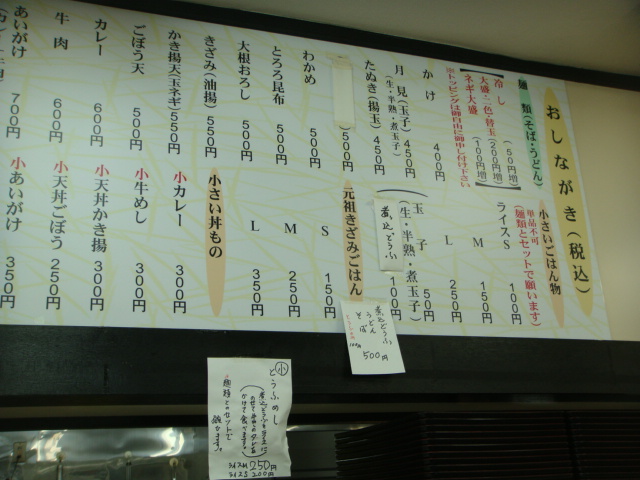 おしながき(税込)
麺類(そば・うどん)
冷し(50円増)
大盛・二色・替玉(200円増)
ネギ大盛(100円増)
かけ 400円
月見(玉子) 450円
(生・半熟・煮玉子)
たぬき(揚玉) 450円
)500円
わかめ 500円
とろろ昆布 500円
大根おろし 500円
きざみ(油揚) 550円
かき揚天(玉ネギ) 550円
ごぼう天 500円
カレー 600円
牛肉 600円
あいがけ 700円
小さいごはん物
単品不可
(麺類とセットで願います)
ライスS 100円
M 150円
L 250円
玉子 50円
(生・半熟・煮玉子)
煮込どうふ 100円
元祖きざみごはん
S 150円
M 250円
L 350円
小さい丼もの
小カレー 300円
小牛めし 300円
小天丼かき揚 300円
小天丼ごぼう 250円
小あいがけ 350円
煮込どうふ
うどん
そば
500円
小とうふめし
麺類とのセットで
ライスM 250円
ライスS 200円